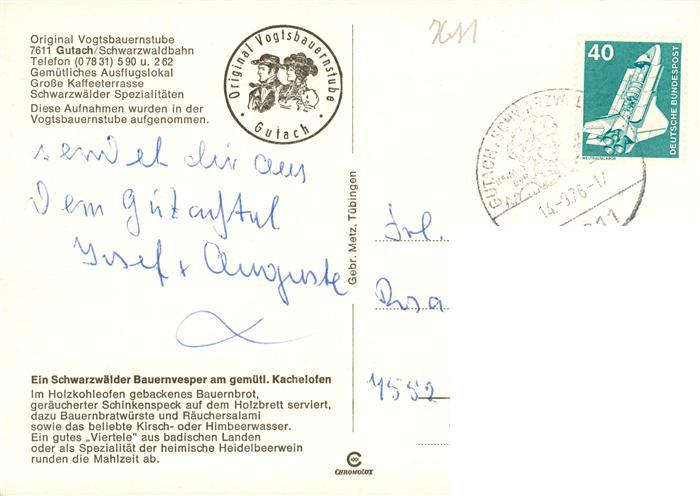 Original Vogtsbauernstube
7611 Gutach/Schwarzwaldbahn
Telefon (0 78 31) 5 90 u. 2 62
Gemütliches Ausflugslokal
Große Kaffeeterrasse
Schwarzwälder Spezialitäten
Diese Aufnahmen wurden in der
Vogtsbauernstube aufgenommen.
Original Vogtsbauernstube
Gutach
7611
40
DEUTSCHE BUNDESPOST
WELTRAUMLABOR
GUTACH / SCHWARZW
14.-3.76-17
7611
sendet dir aus
dem Gutachtal
Josef + Auguste
Gebr. Metz, Tübingen
Frl.
Rosa
4552
Ein Schwarzwälder Bauernvesper am gemütl. Kachelofen
Im Holzkohleofen gebackenes Bauernbrot,
geräucherter Schinkenspeck auf dem Holzbrett serviert,
dazu Bauernbratwürste und Räuchersalami
sowie das beliebte Kirsch- oder Himbeerwasser.
Ein gutes „Viertele" aus badischen Landen
oder als Spezialität der heimische Heidelbeerwein
runden die Mahlzeit ab.
CHROMOLUX